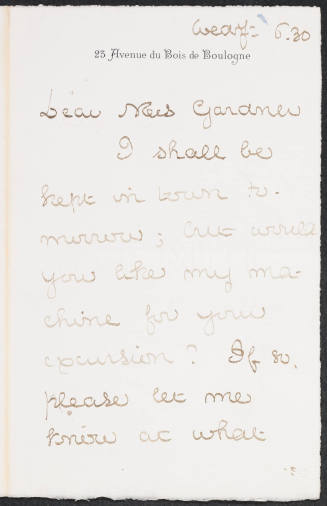 Wedy- 6.30
23 Avenue du Bois de Boulogne
Dear Mrs Gardner
I shall be
kept in town to-
morrow; but would
you like my ma-
chine for your
excursion? If so,
please let me
know at what